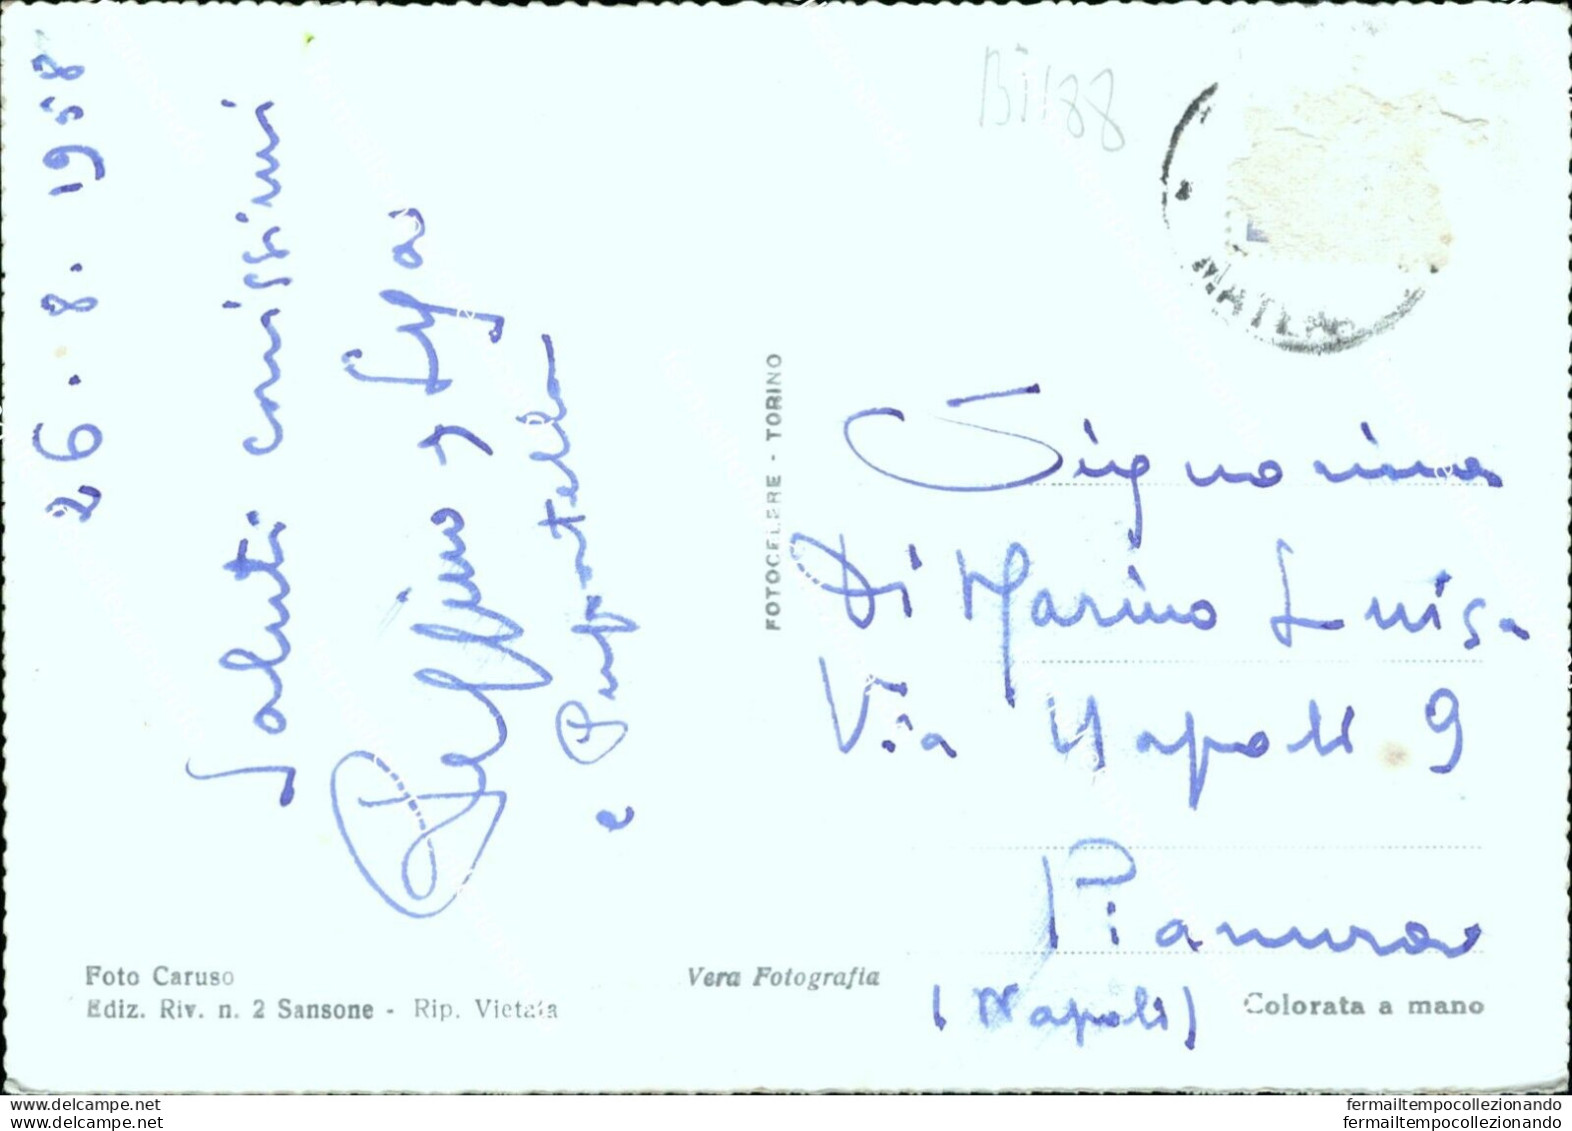 26.8.1958
Saluti carissimi
e
Bi188
MATLAC
FOTOCELERE - TORINO
Signorina
Di Marino Luisa
Via Napoli 9
Pianura
(Napoli)
Foto Caruso
Ediz. Riv. n. 2 Sansone - Rip. Vietata
Vera Fotografia
Colorata a mano
www.delcampe.net
www.delcampe.net
fermailtempocollezionando
fermailtempocollezionando